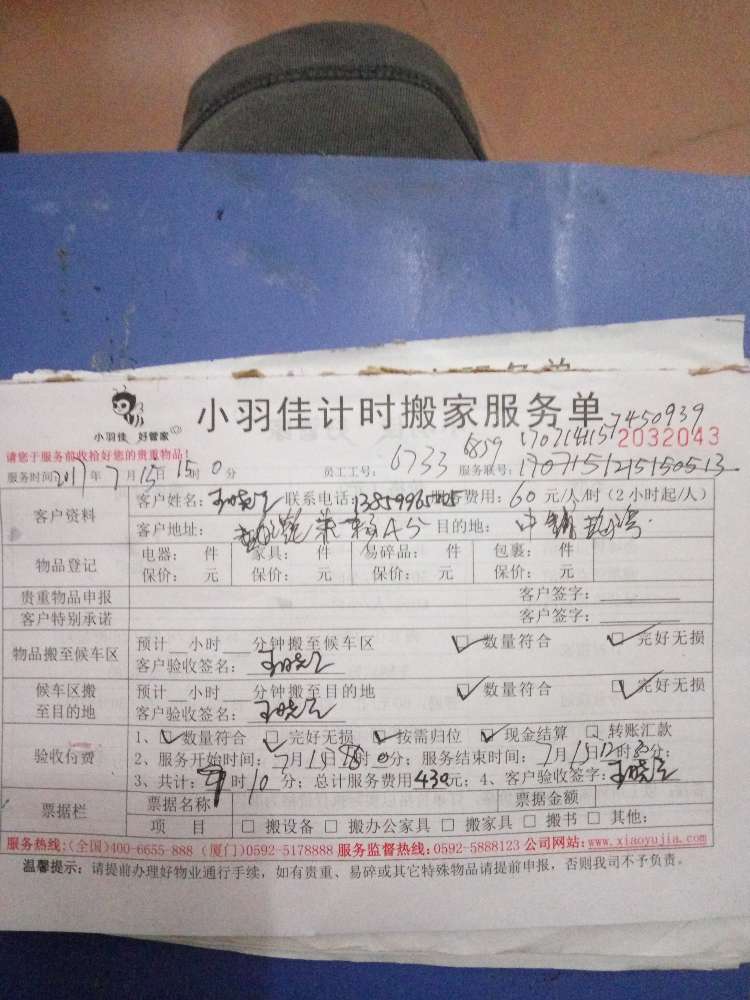 小羽佳 好管家
小羽佳计时搬家服务单
17071415 17450939
请您于服务前收拾好您的贵重物品!
2032043
服务时间:2017年7月15日15时0分 员工工号: 6733 6859 服务联号: 170715121515 0513
客户资料
客户姓名: 联系电话: 费用: 60 元/人/时(2小时起/人)
客户地址: 目的地:
物品登记
电器: 件 家具: 件 易碎品: 件 包裹: 件
保价: 元 保价: 元 保价: 元 保价: 元
贵重物品申报 客户签字:
客户特别承诺 客户签字:
物品搬至候车区
预计 小时 分钟搬至候车区 ☑数量符合 ☑完好无损
客户验收签名:
候车区搬至目的地
预计 小时 分钟搬至目的地 ☑数量符合 ☑完好无损
客户验收签名:
验收付费
1、☑数量符合 ☑完好无损 ☑按需归位 ☑现金结算 □转账汇款
2、服务开始时间: 7月15日 时 分; 服务结束时间: 7月15日 时 分;
3、共计: 时10分; 总计服务费用430元; 4、客户验收签字:
票据栏
票据名称 票据金额
项 目 □ 搬设备 □ 搬办公家具 □ 搬家具 □ 搬书 □ 其他:
服务热线:(全国)400-6655-888 (厦门)0592-5178888 服务监督热线:0592-5888123 公司网站:www.xiaoyujia.com
温馨提示: 请提前办理好物业通行手续,如有贵重、易碎或其它特殊物品请提前申报,否则我司不予负责。